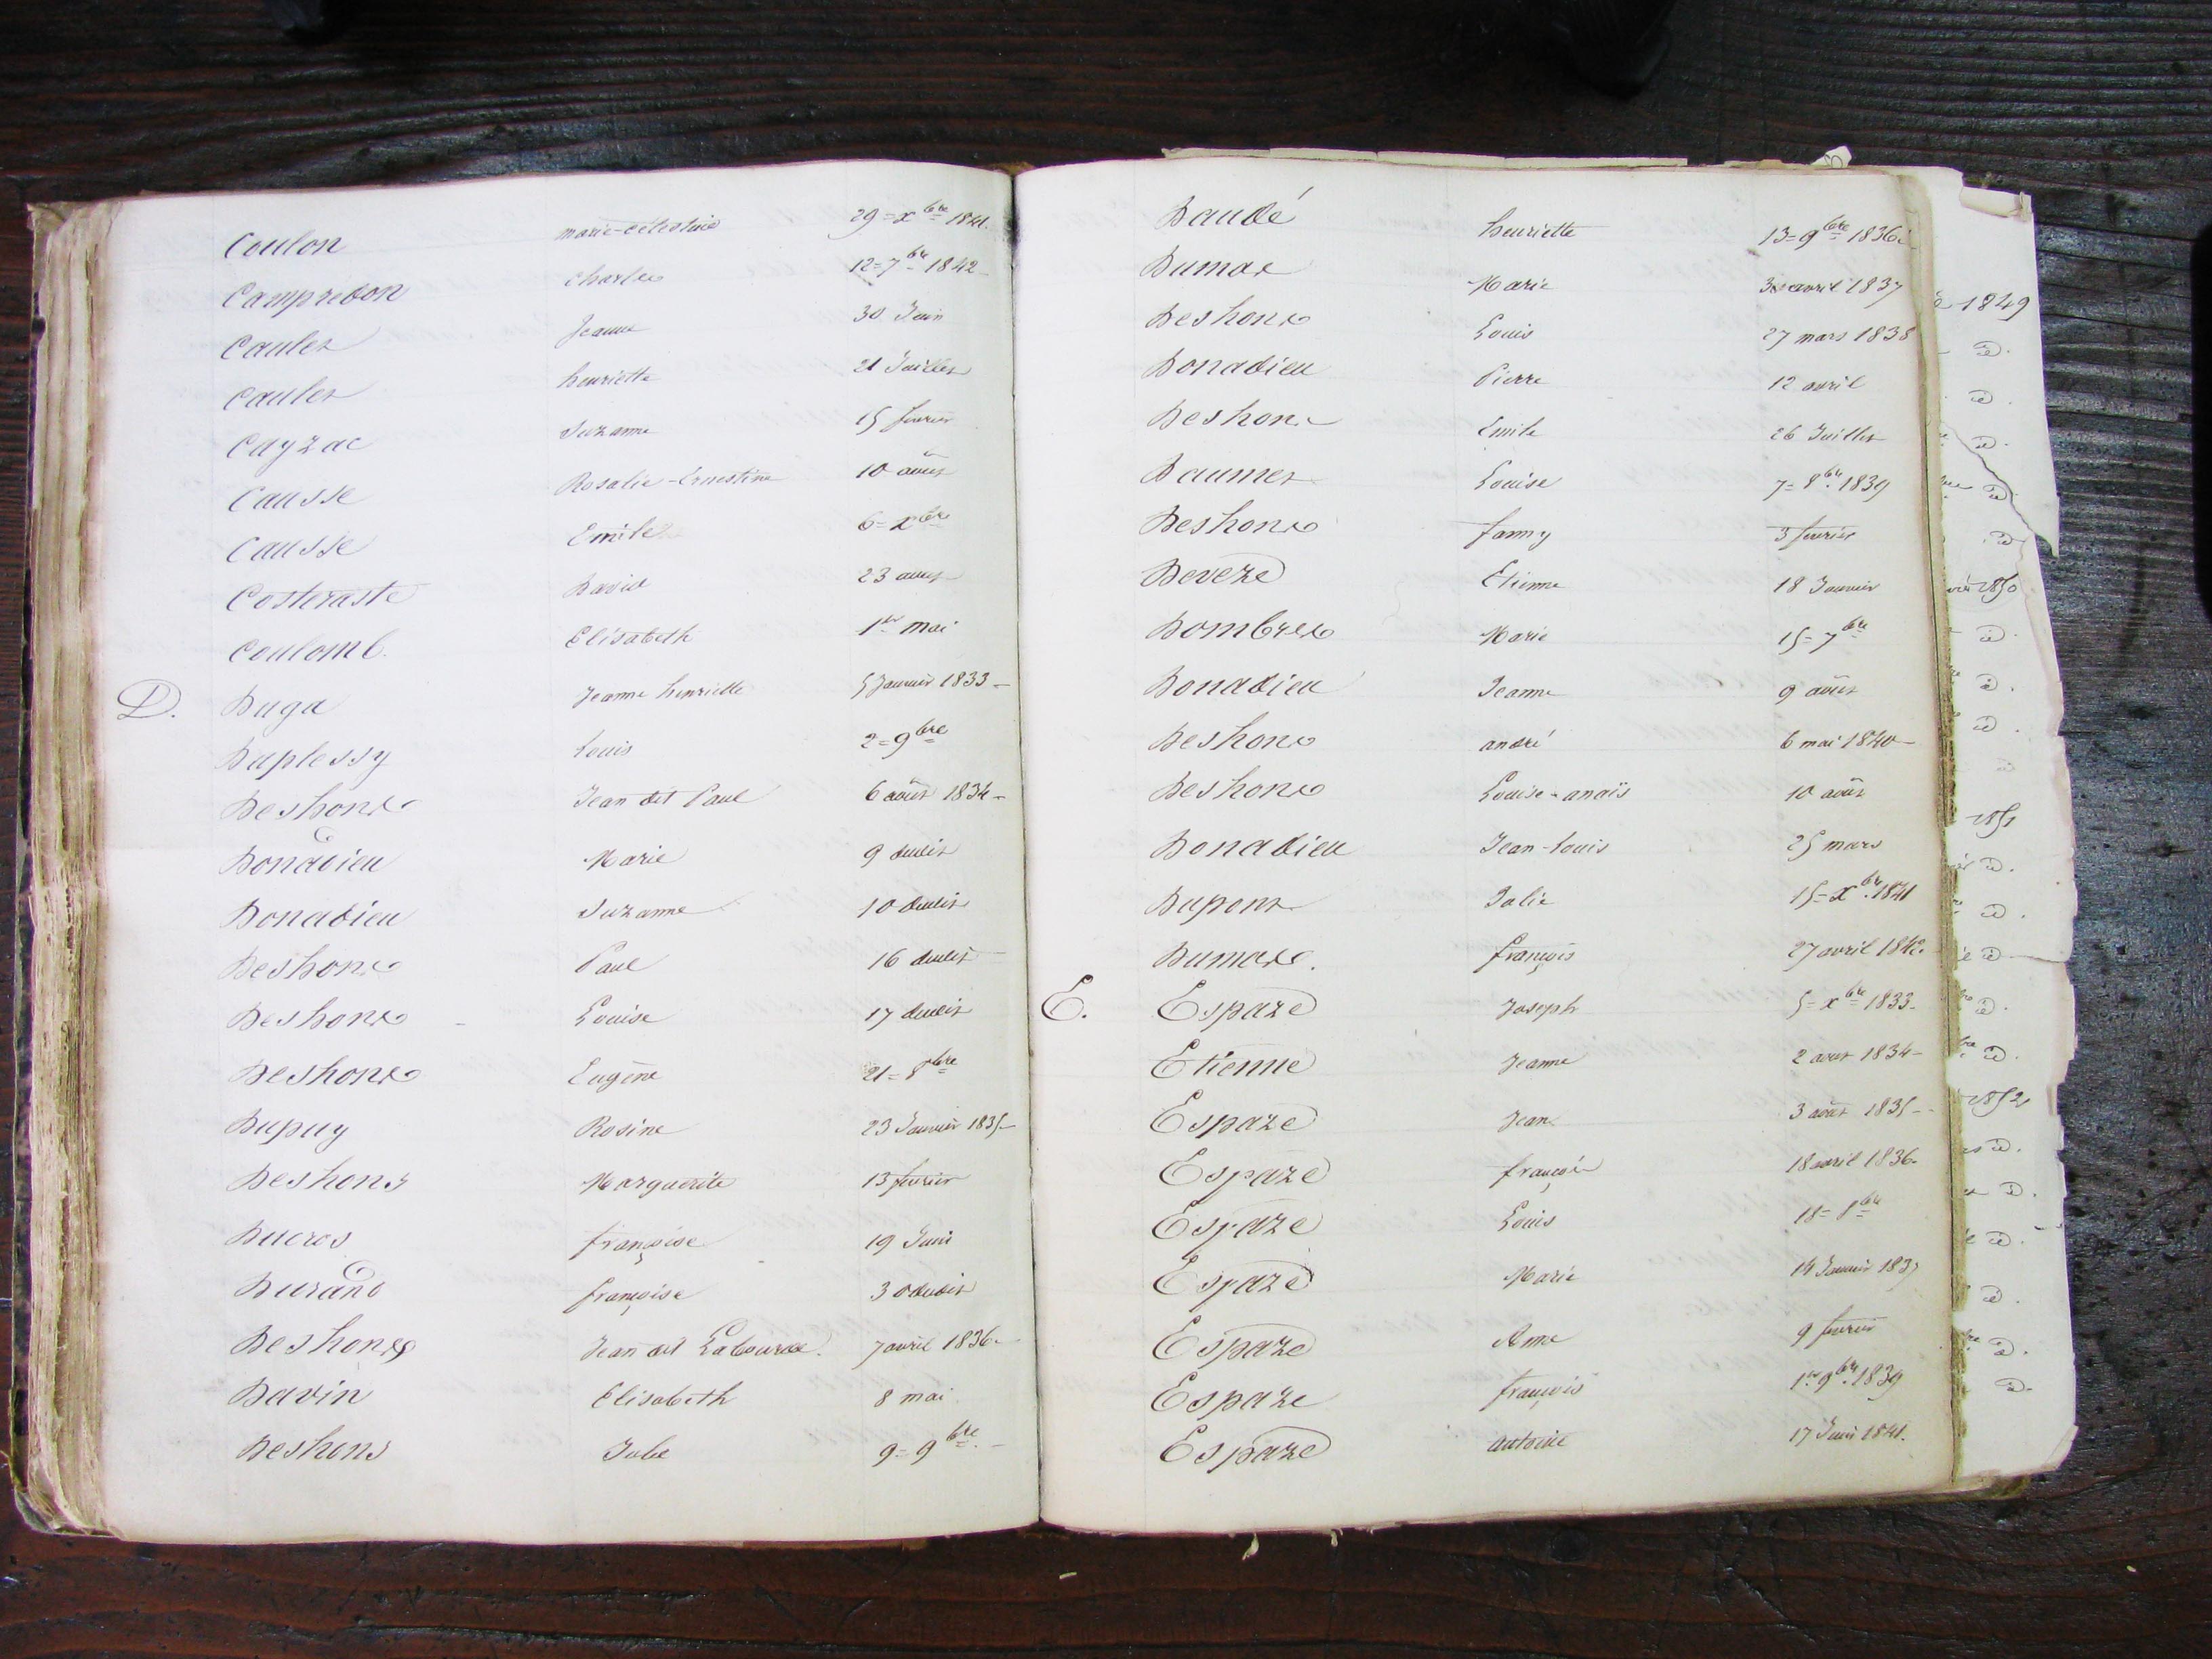 Coulon marie-célestine 29=xbre 1841.
Campredon charles 12=7bre 1842
Caulet Jeanne 30 Juin
Caulet henriette 21 Juillet
Cayzac Suzanne 15 fevrier
Causse Rosalie-Ernestine 10 août
Causse Emile 6=xbre
Costeraste David 23 août
Coulomb. Elisabeth 1er mai
D. Duga Jeanne henriette 5 Janvier 1833
Duplessy Louis 2=9bre
Deshons Jean dit Paul 6 août 1834
Donadieu Marie 9 dudit
Donadieu Suzanne 10 dudit
Deshons Paul 16 dudit
Deshons Louise 17 dudit
Deshons Eugène 21=8bre
Dupuy Rosine 23 Janvier 1835
Deshons Marguerite 13 fevrier
Ducros françoise 19 Juin
Durand françoise 30 dudit
Deshons Jean dit 7 avril 1836
Davin Elisabeth 8 mai
Deshons Julie 9=9bre
Daudé henriette 13=9bre 1836
Dumas Marie avril 1837
Deshons Louis 27 mars 1838
Donadieu Pierre 12 avril
Deshons Emile 26 Juillet
Daumet Louise 7=8bre 1839
Deshons fanny 3 fevrier
Deveze Etienne 18 Janvier
Dombres Marie 15=7bre
Donadieu Jeanne 9 août
Deshons andré 6 mai 1840
Deshons Louise-anaïs 10 août
Donadieu Jean-Louis 25 mars
Dupont Julie 15=xbre 1841
Dumas. françois 27 avril 1842
E. Espaze Joseph 5=xbre 1833
Etienne Jeanne 2 aout 1834
Espaze Jean 3 août 1835
Espaze françois 18 avril 1836
Espaze Louis 18=8bre
Espaze Marie 14 Janvier 1837
Espaze Anne 9 fevrier
Espaze françois 1er 9bre 1839
Espaze antoine 17 Juin 1841.
1849
1850
1851
1852